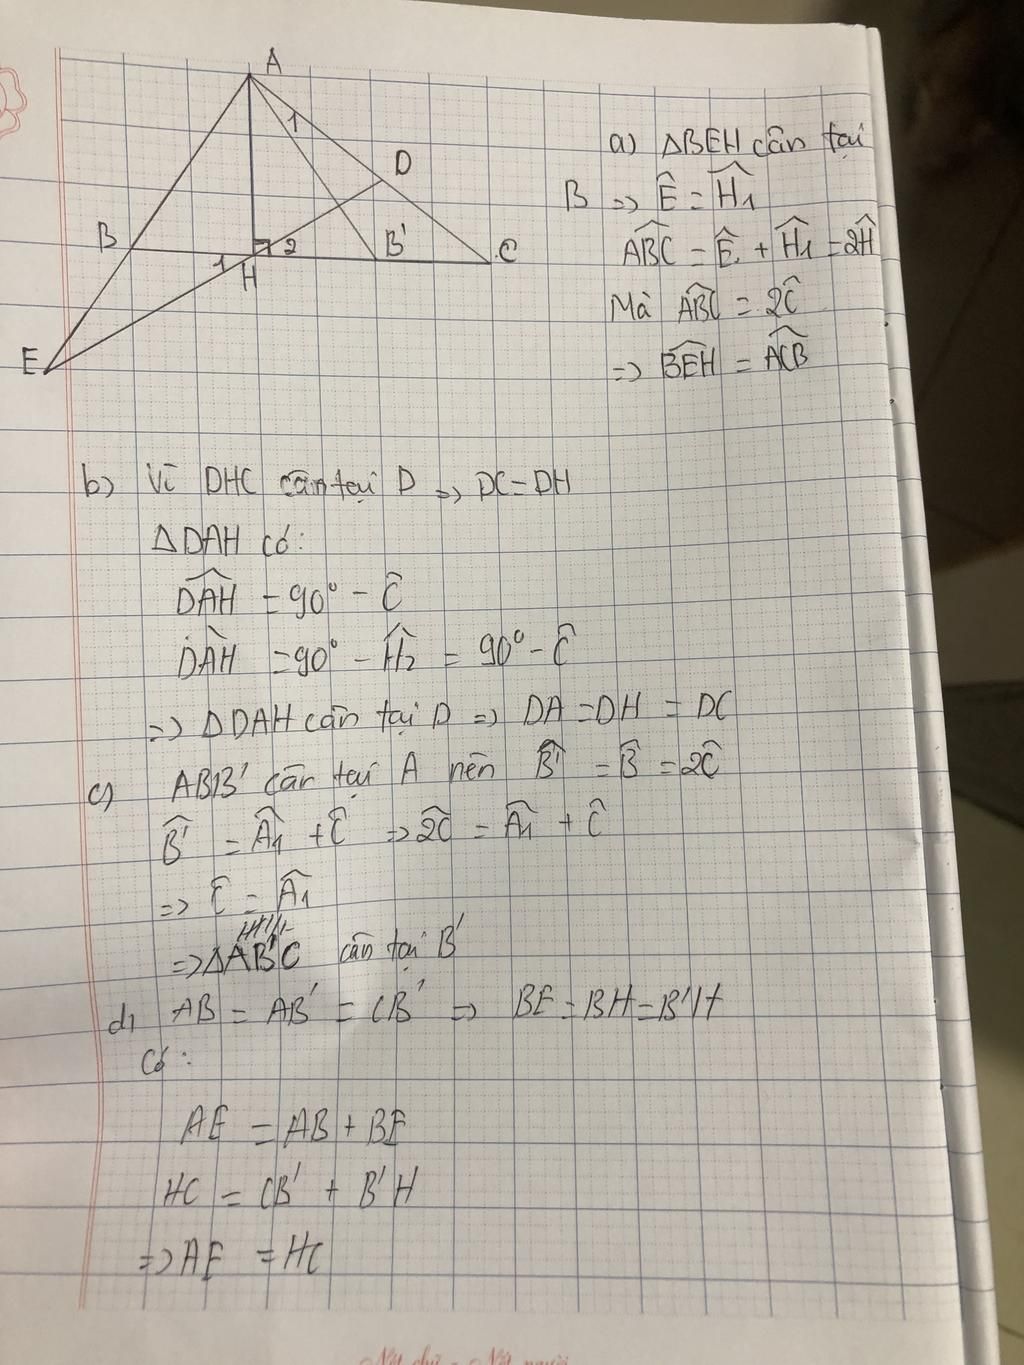 A
1
D
B
1
H
2
B'
C
E
a) ΔBEH cân tại
B => Ê = Ĥ₁
ABC^ = Ê + Ĥ₁ = 2Ĥ
Mà ABC^ = 2Ĉ
=> BEH^ = ACB^
b) Vì DHC cân tại D => DC = DH
ΔDAH có:
DAH^ = 90° - Ĉ
DAH^ = 90° - Ĥ₂ = 90° - Ĉ
=> ΔDAH cân tại D => DA = DH = DC
c) ABB' cân tại A nên B'^ = B^ = 2Ĉ
B'^ = Â₁ + Ĉ => 2Ĉ = Â₁ + Ĉ
=> Ĉ = Â₁
=> ΔAB'C cân tại B'
d, AB = AB' = CB' => BE = BH = B'H
Có:
AE = AB + BE
HC = CB' + B'H
=> AE = HC